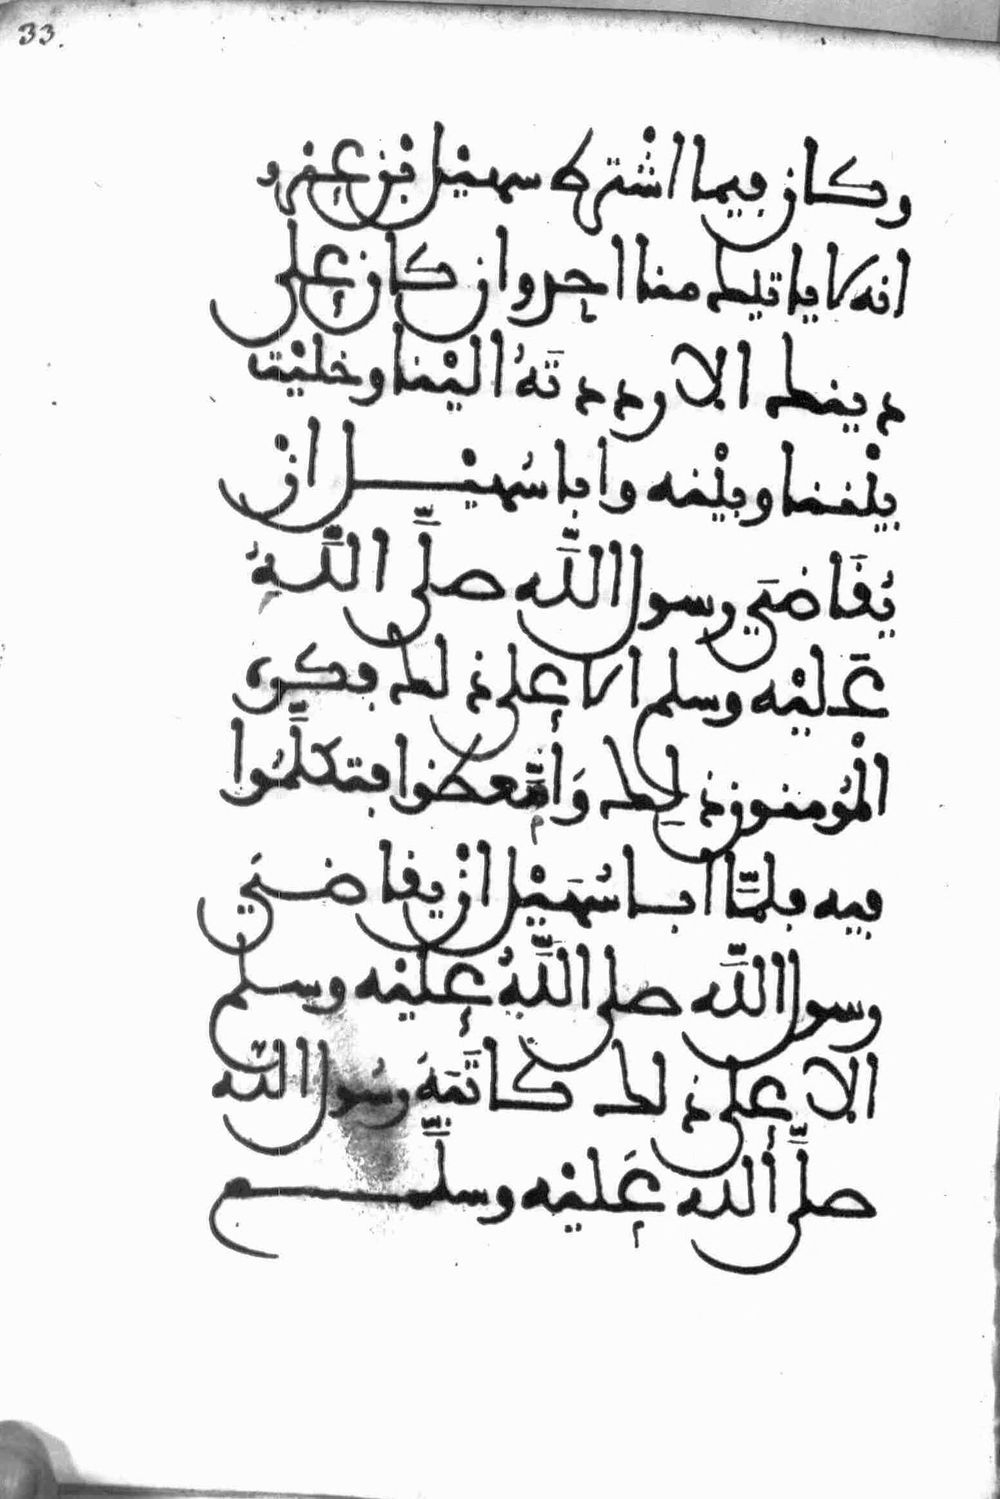 33.
وكان فيما اشترط سهيل بن عمرو
انه لا ياتيك منا احد وان كان على
دينك الا رددتَهُ الينا وخليت
بيننا وبينه وابا سُهيل ان
يُقَاضَي رسول اللَّه صلَّى اللَّهُ
عَليه وسلم الا على ذلك فكره
المُؤمنون ذلِك وَامَّعضوا فتكلَّمُوا
فيه فلمَّا ابا سُهَيْل ان يقاضَي
رسول اللَّه صلى اللَّهُ عليه وسلم
الا على ذلك كاتَبَهُ رسُول اللَّه
صلَّى الله عَليه وسلَّم